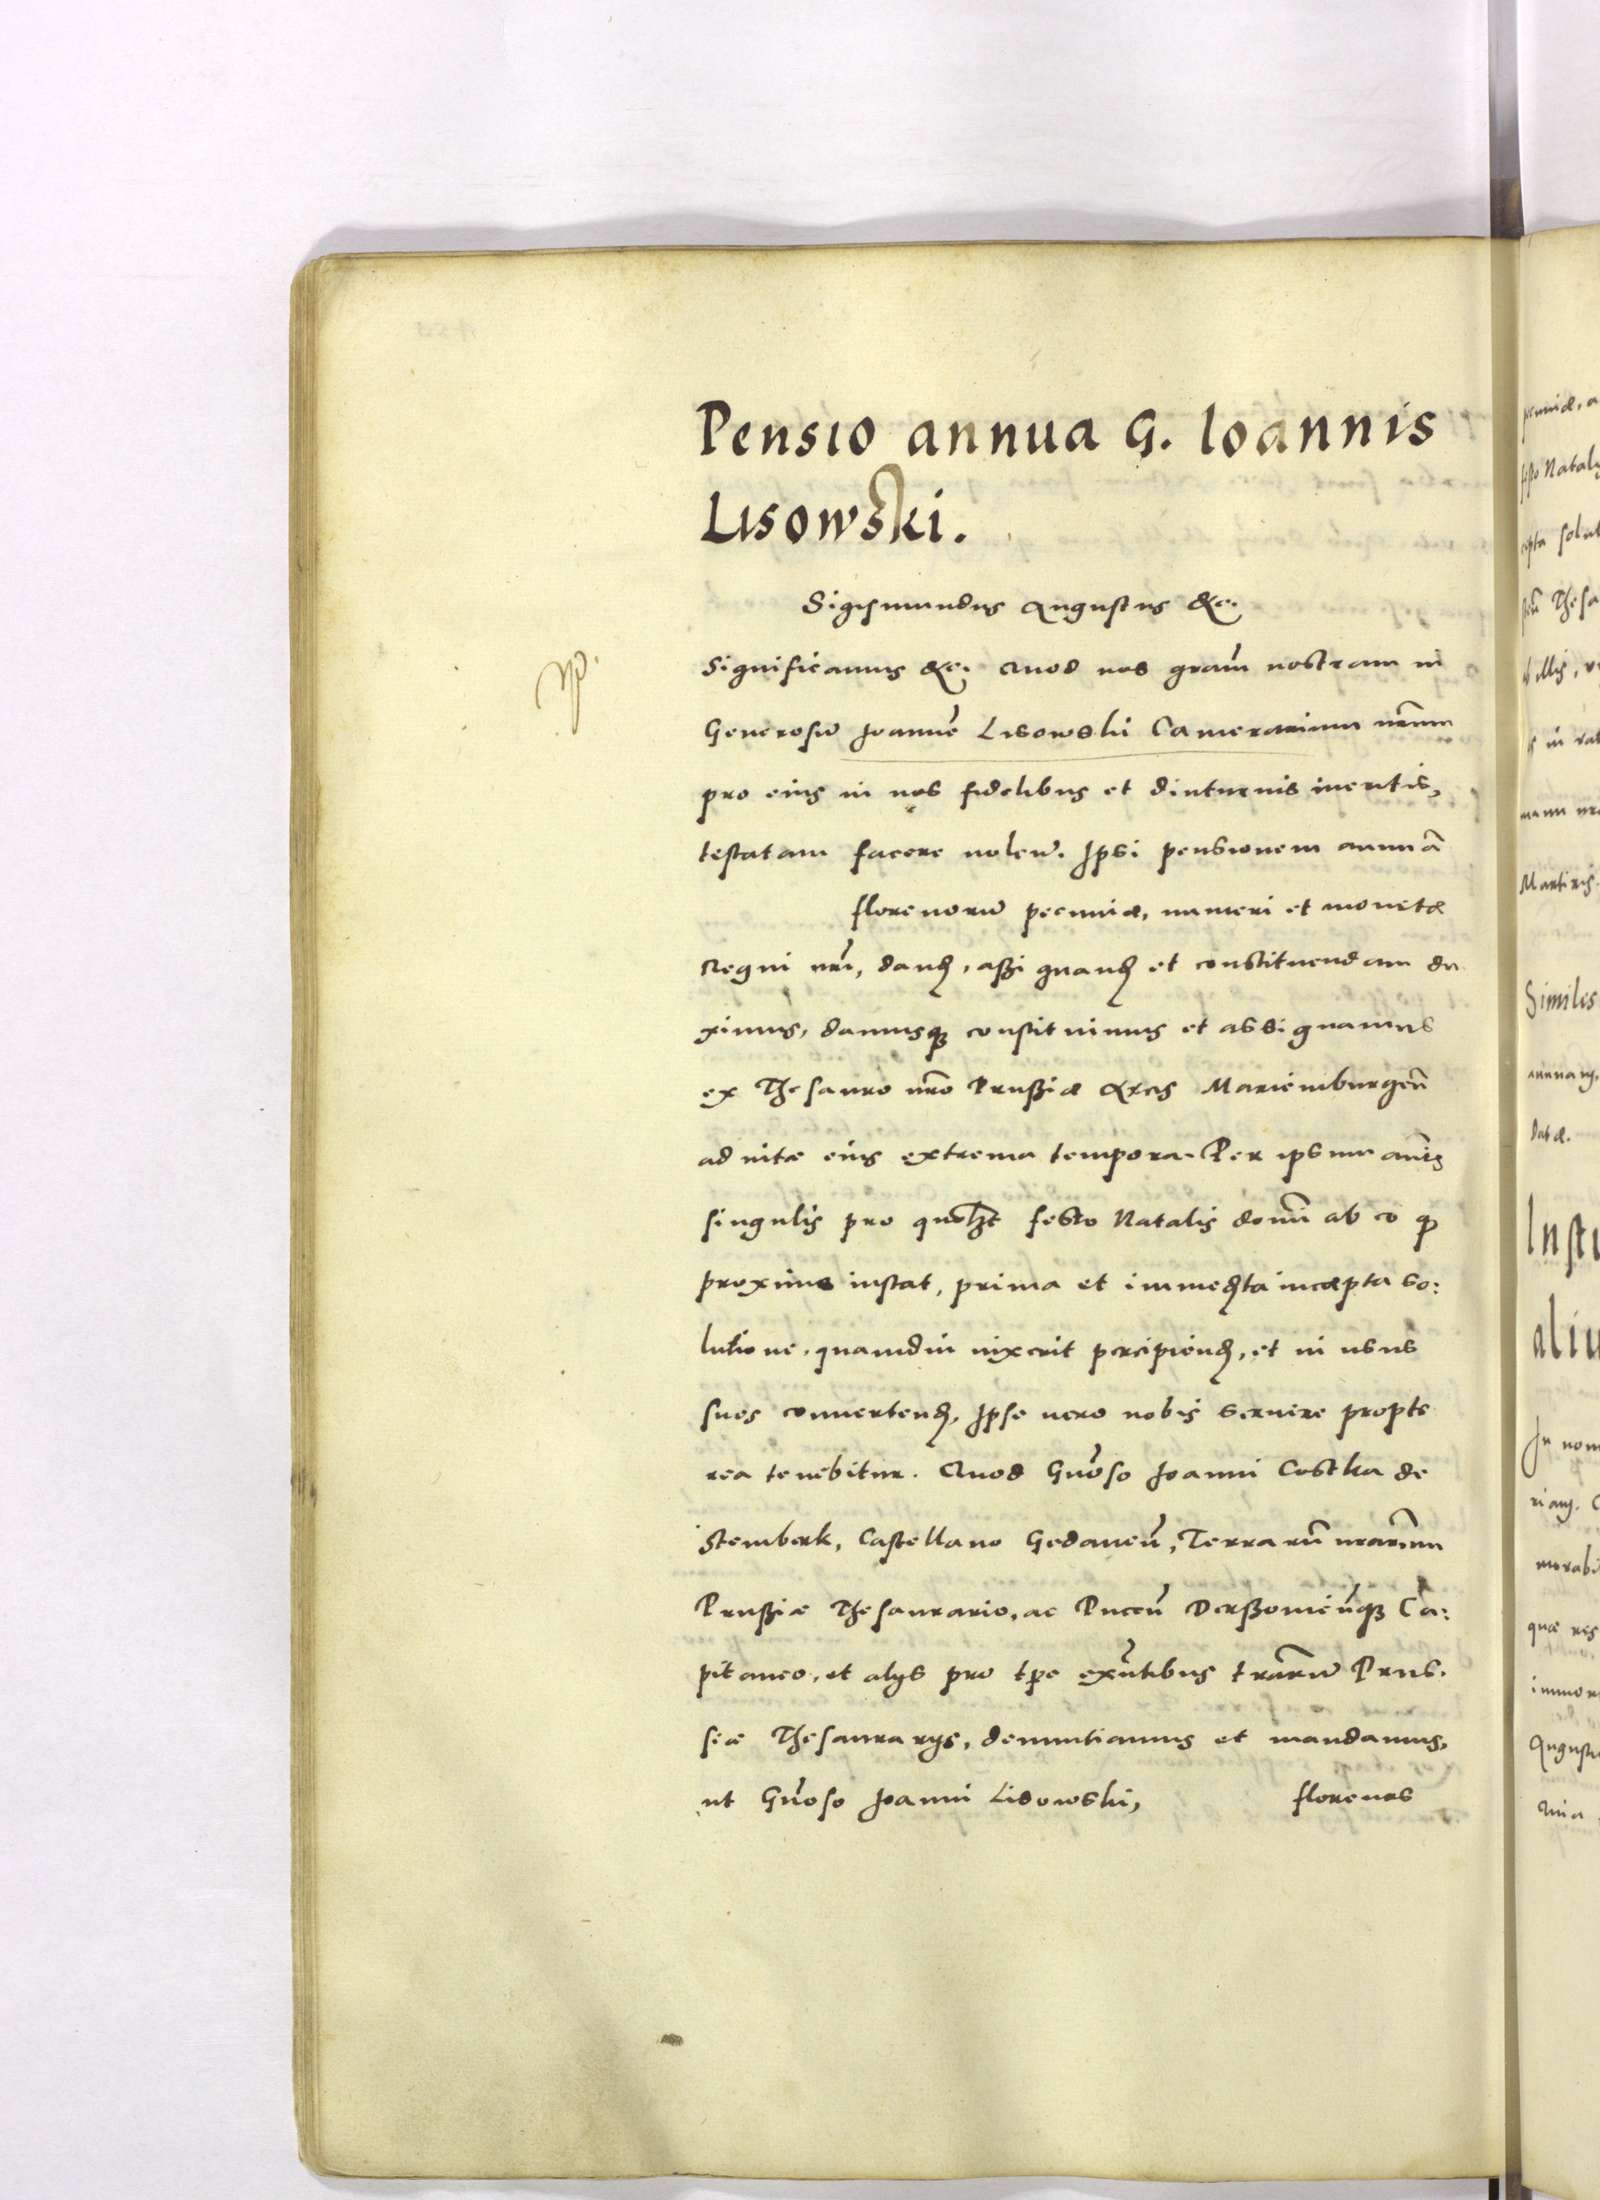 Pensio annua G. Ioannis
Lisowski.
Sigismundus Augustus &c.
Significamus &c. Quod nos gram̄ nostram in
Generosū Joannē Lisowski Camerarium nr̄um
pro eius in nos fidelibus et diuturnis meritis,
testatam facere volen̄. Ipsi pensionem annuā
florenorū pecuniæ, numeri et monetæ
Regni nr̄i, dand, assignand et constituendam du
ximus, damusq constituimus et assignamus
ex Thesauro nr̄o Prussiæ Arcis Mariemburgen̄
ad vitæ eius extrema tempora. Per ipsum annis
singulis pro quolzt festo Natalis domī ab eo q
proxime instat, prima et immedta incæpta so:
lutione, quamdiu vixerit percipiend, et in usus
suos convertend, Ipse vero nobis servire propte
rea tenebitur. Quod Gn̄oso Joanni Costka de
Stemberk, Castellano Gedanen̄, Terrarū nrar̄um
Prussiæ Thesaurario, ac Pucen̄ Derssovien̄q Ca:
pitaneo, et alijs pro tpe exn̄tibus trar̄ū Prus:
siæ Thesaurarijs, denuntiamus et mandamus,
ut Gn̄oso Joanni Lisowski, florenos
pecuniæ, a
festo Natalis
cepta solut
Thesa
ab illis, ut
in rat
manu nr
Martiris.
Similes
annang.
Datæ.
Insti
aliu
In nom
riang. C
morabi
quæ res
immor
Augustu